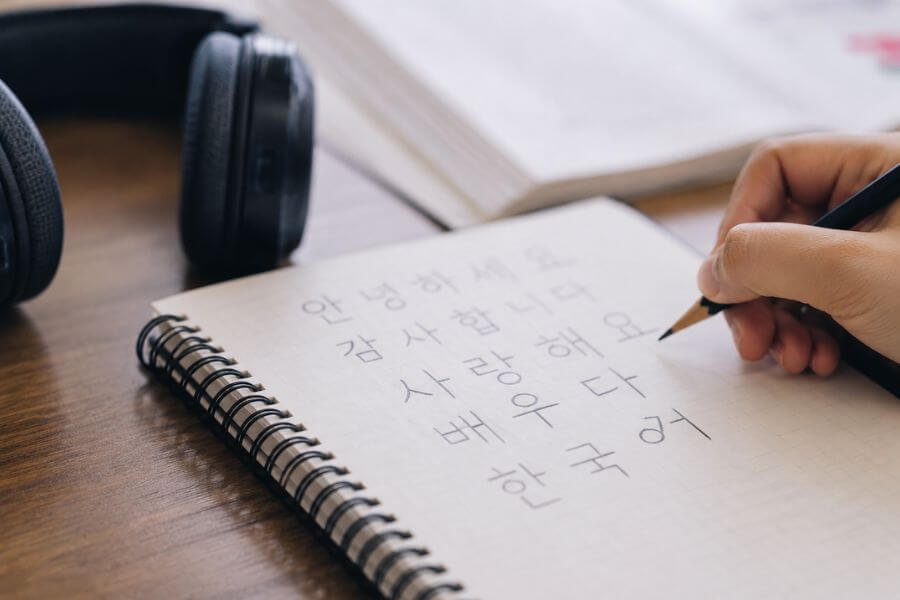 안녕하세요
감사합니다
사랑해요
배우다
한국어